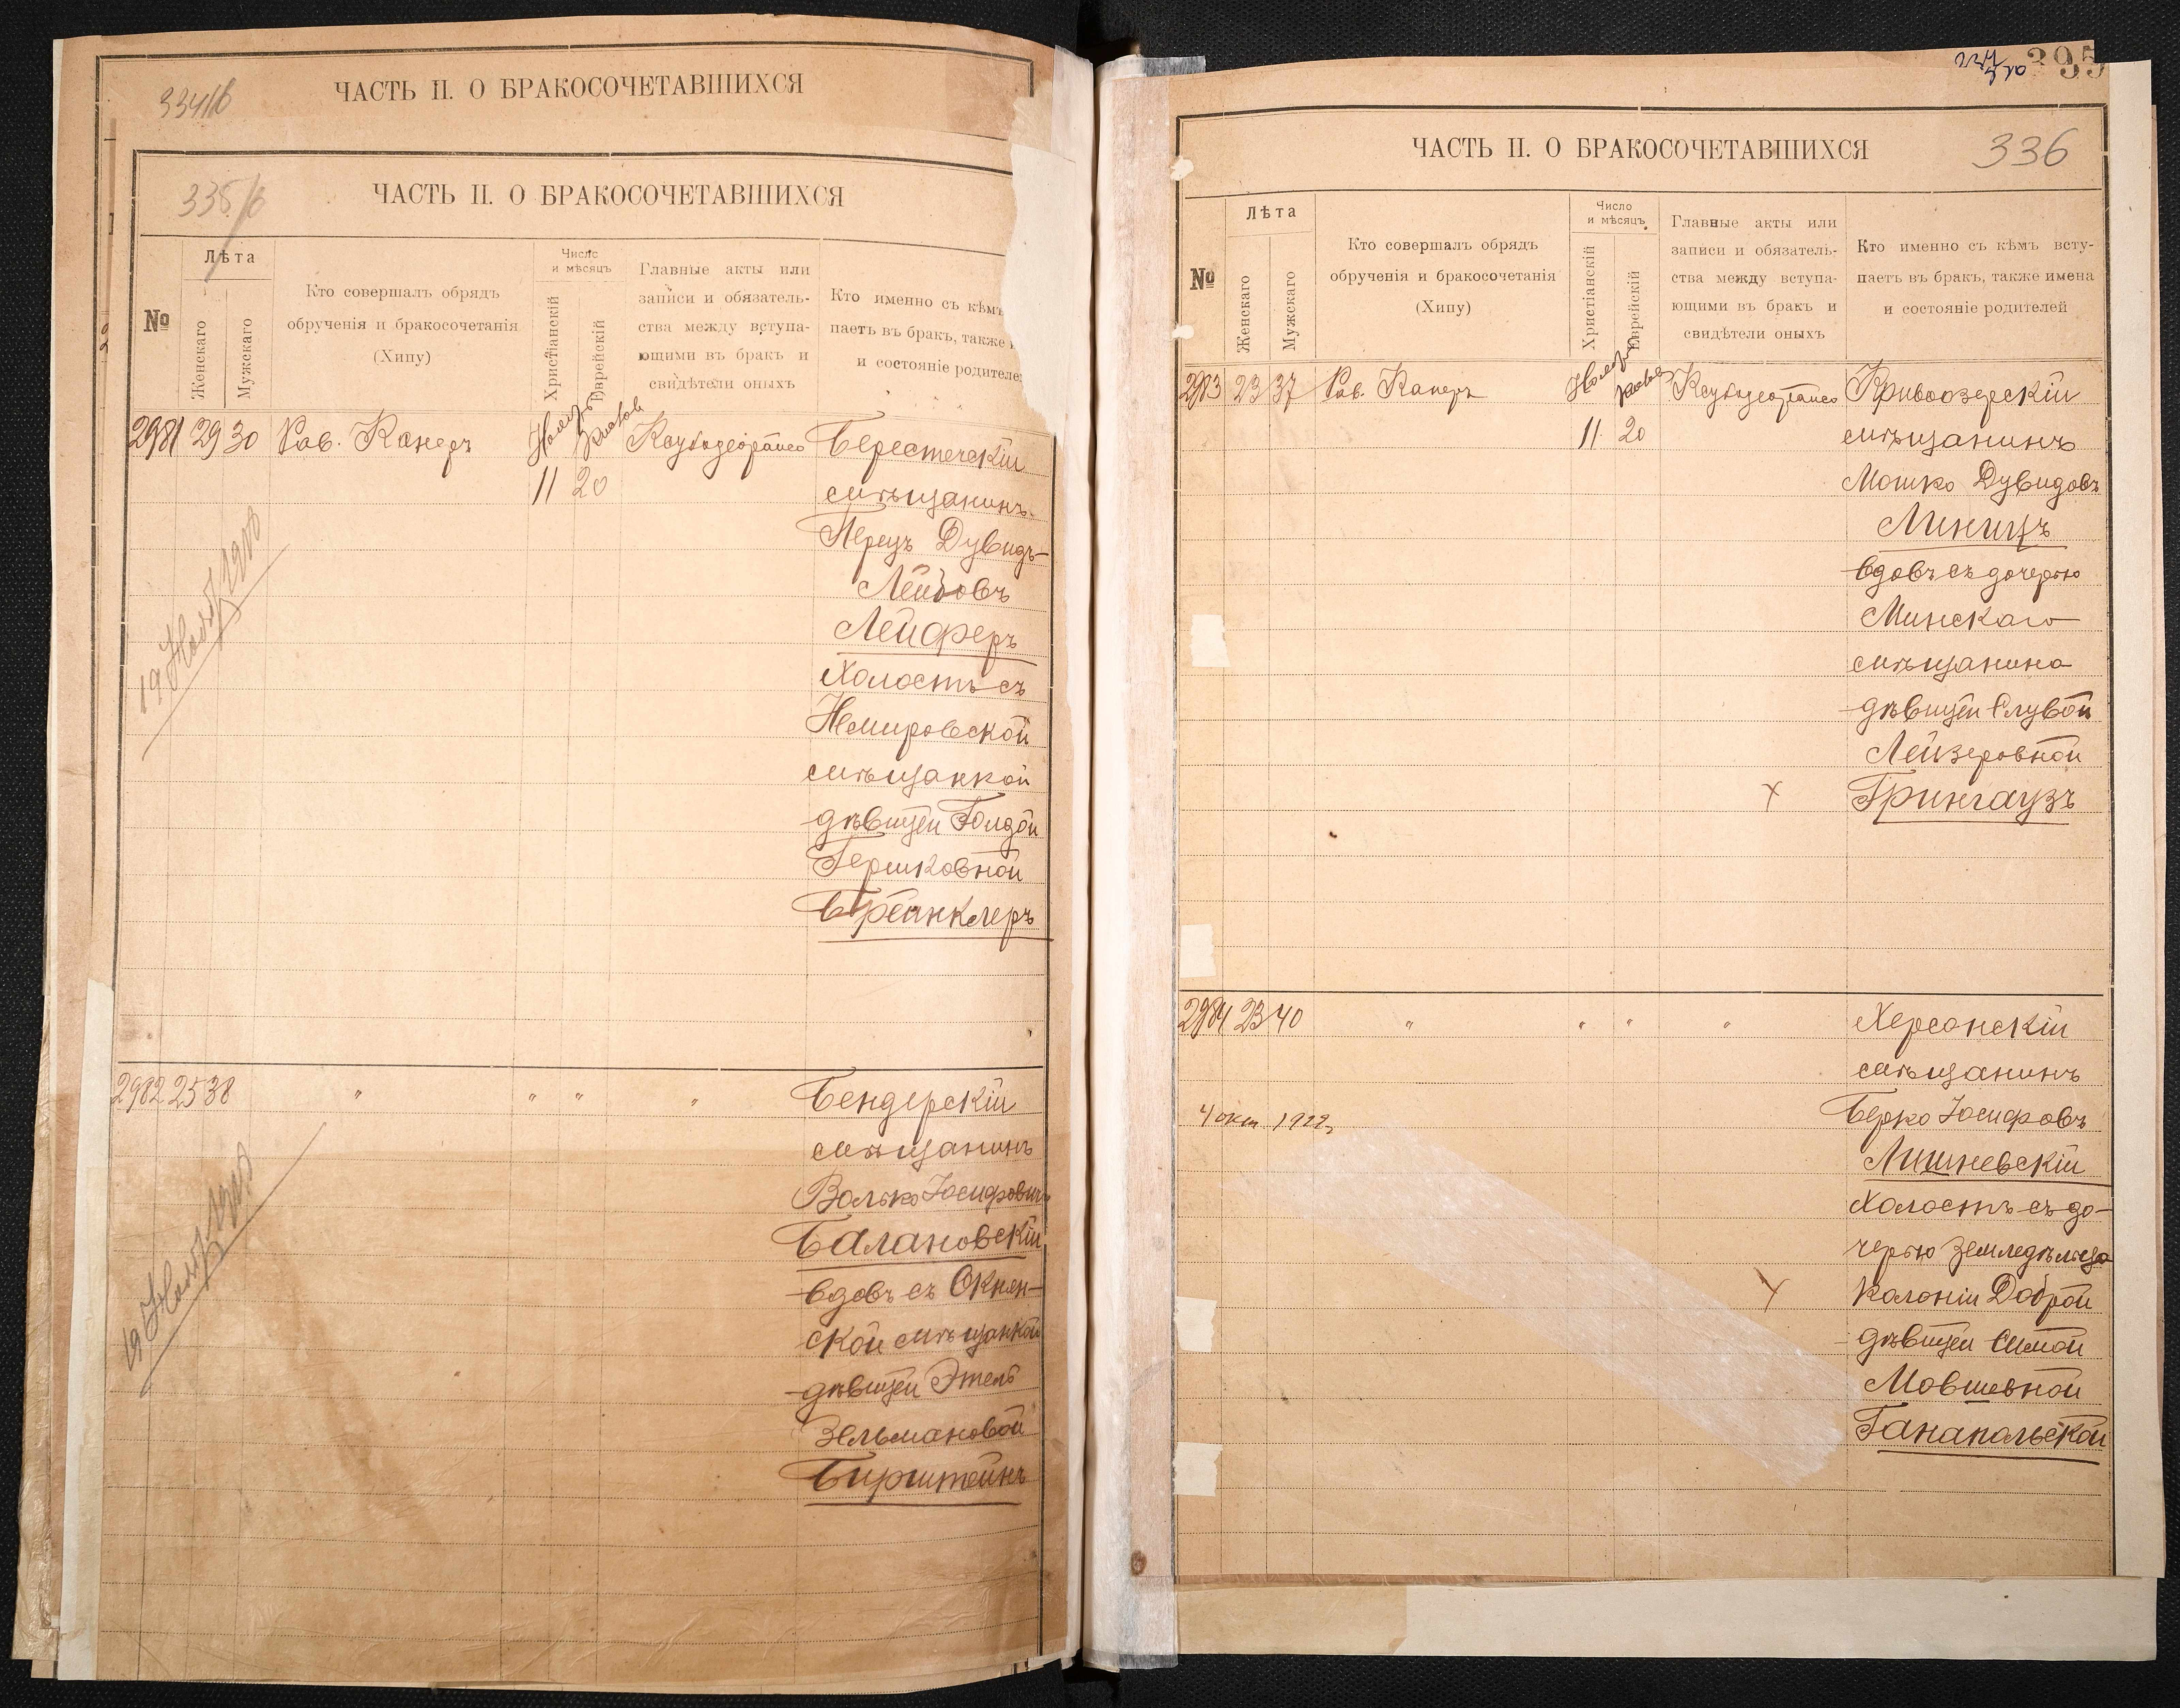 334/б
ЧАСТЬ II. О БРАКОСОЧЕТАВШИХСЯ
335/б
ЧАСТЬ II. О БРАКОСОЧЕТАВШИХСЯ
№
Лѣта
Женскаго
Мужскаго
Кто совершалъ обрядъ
обрученія и бракосочетанія
(Хипу)
Число
и мѣсяцъ
Христіанскій
Еврейскій
Главные акты или
записи и обязатель-
ства между вступа-
ющими въ бракъ и
свидѣтели оныхъ
Кто именно съ кѣмъ
паетъ въ бракъ, также
и состояніе родителе
2981 29 30 Рав. Канеръ Ноябрь
11 20
Берестечскій
мѣщанинъ
Перецъ Дувидъ-
Лейбовъ
Лейферъ
холостъ съ
Немировской
мѣщанкой
дѣвицей Голдой
Гершковной
19 Нояб 1908
2982 25 38 " " " "
Бендерскій
мѣщанинъ
Волько Іосифовичъ
Балановскій
вдовъ съ Окнян-
ской мѣщанкой
дѣвицей Этель
Зельмановой
Бирштейнъ
19 Нояб 1908
395
ЧАСТЬ II. О БРАКОСОЧЕТАВШИХСЯ
336
№
Лѣта
Женскаго
Мужскаго
Кто совершалъ обрядъ
обрученія и бракосочетанія
(Хипу)
Число
и мѣсяцъ
Христіанскій
Еврейскій
Главные акты или
записи и обязатель-
ства между вступа-
ющими въ бракъ и
свидѣтели оныхъ
Кто именно съ кѣмъ всту-
паетъ въ бракъ, также имена
и состояніе родителей
2983 23 37 Рав. Канеръ Ноябрь
11 20
Кривоозерскій
мѣщанинъ
Мошко Дувидовъ
Линицъ
вдовъ съ дочерью
Минскаго
мѣщанина
дѣвицей Слувой
Лейзеровной
Грингаузъ
2984 23 40 " " " "
Херсонскій
мѣщанинъ
Берко Іосифовъ
Лишневскій
холостъ съ до-
черью земледѣльца
колоніи Доброй
дѣвицей Симой
Мовшевной
Ганапольской
4 окт 1922